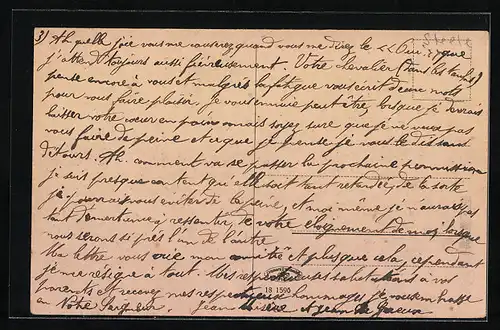 3) Ah quelle joie vous me causerez quand vous me direz le << Oui >> que
j'attends toujours aussi fiévreusement. Votre chevalier (dans les
pense encore à vous et malgrès la fatigue vous écrit deux mots
pour vous faire plaisir. Je vous ennuie peut être, lorsque je devrais
laisser votre coeur en paix mais soyez sure que je ne veux pas
vous faire de peine et ce que je pense je vous le dis sans
détours. Ah. comment va se passer la prochaine permission
je suis presque content qu'elle soit tant retardée, de la sorte
je pourrais vous éviter de la peine, et moi même je n'aurai pas
tant d'amertume à ressentir, de votre éloignement de moi lorsque
nous serons si près l'un de l'autre
Ma lettre vous mon amitié et plus que cela, cependant
je me résigne à tout. Mes respectueuses salutations à vos
parents et recevez mes respectueux hommages. Je vous embrasse
en Votre Jean
18 1590